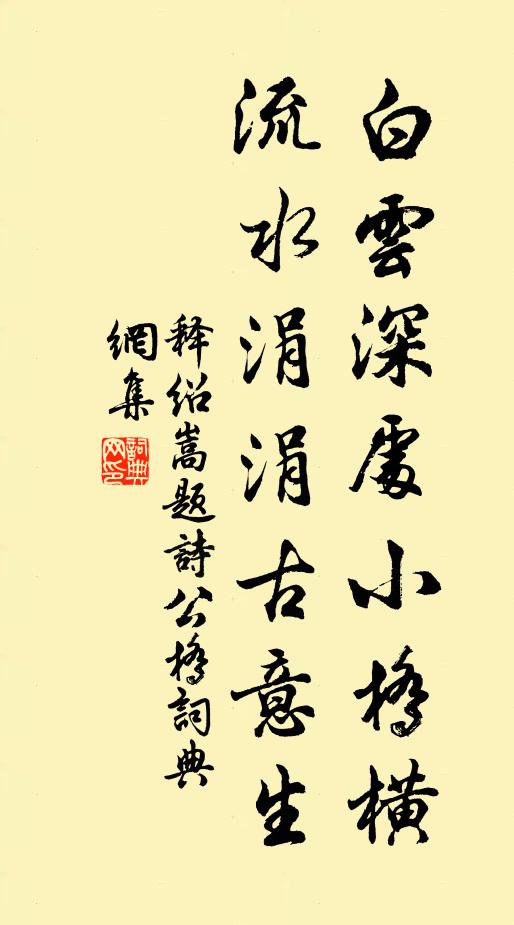 白雲深處小橋橫
流水涓涓古意生
释绍嵩題詩公橋詞典
網集
詞典
网印